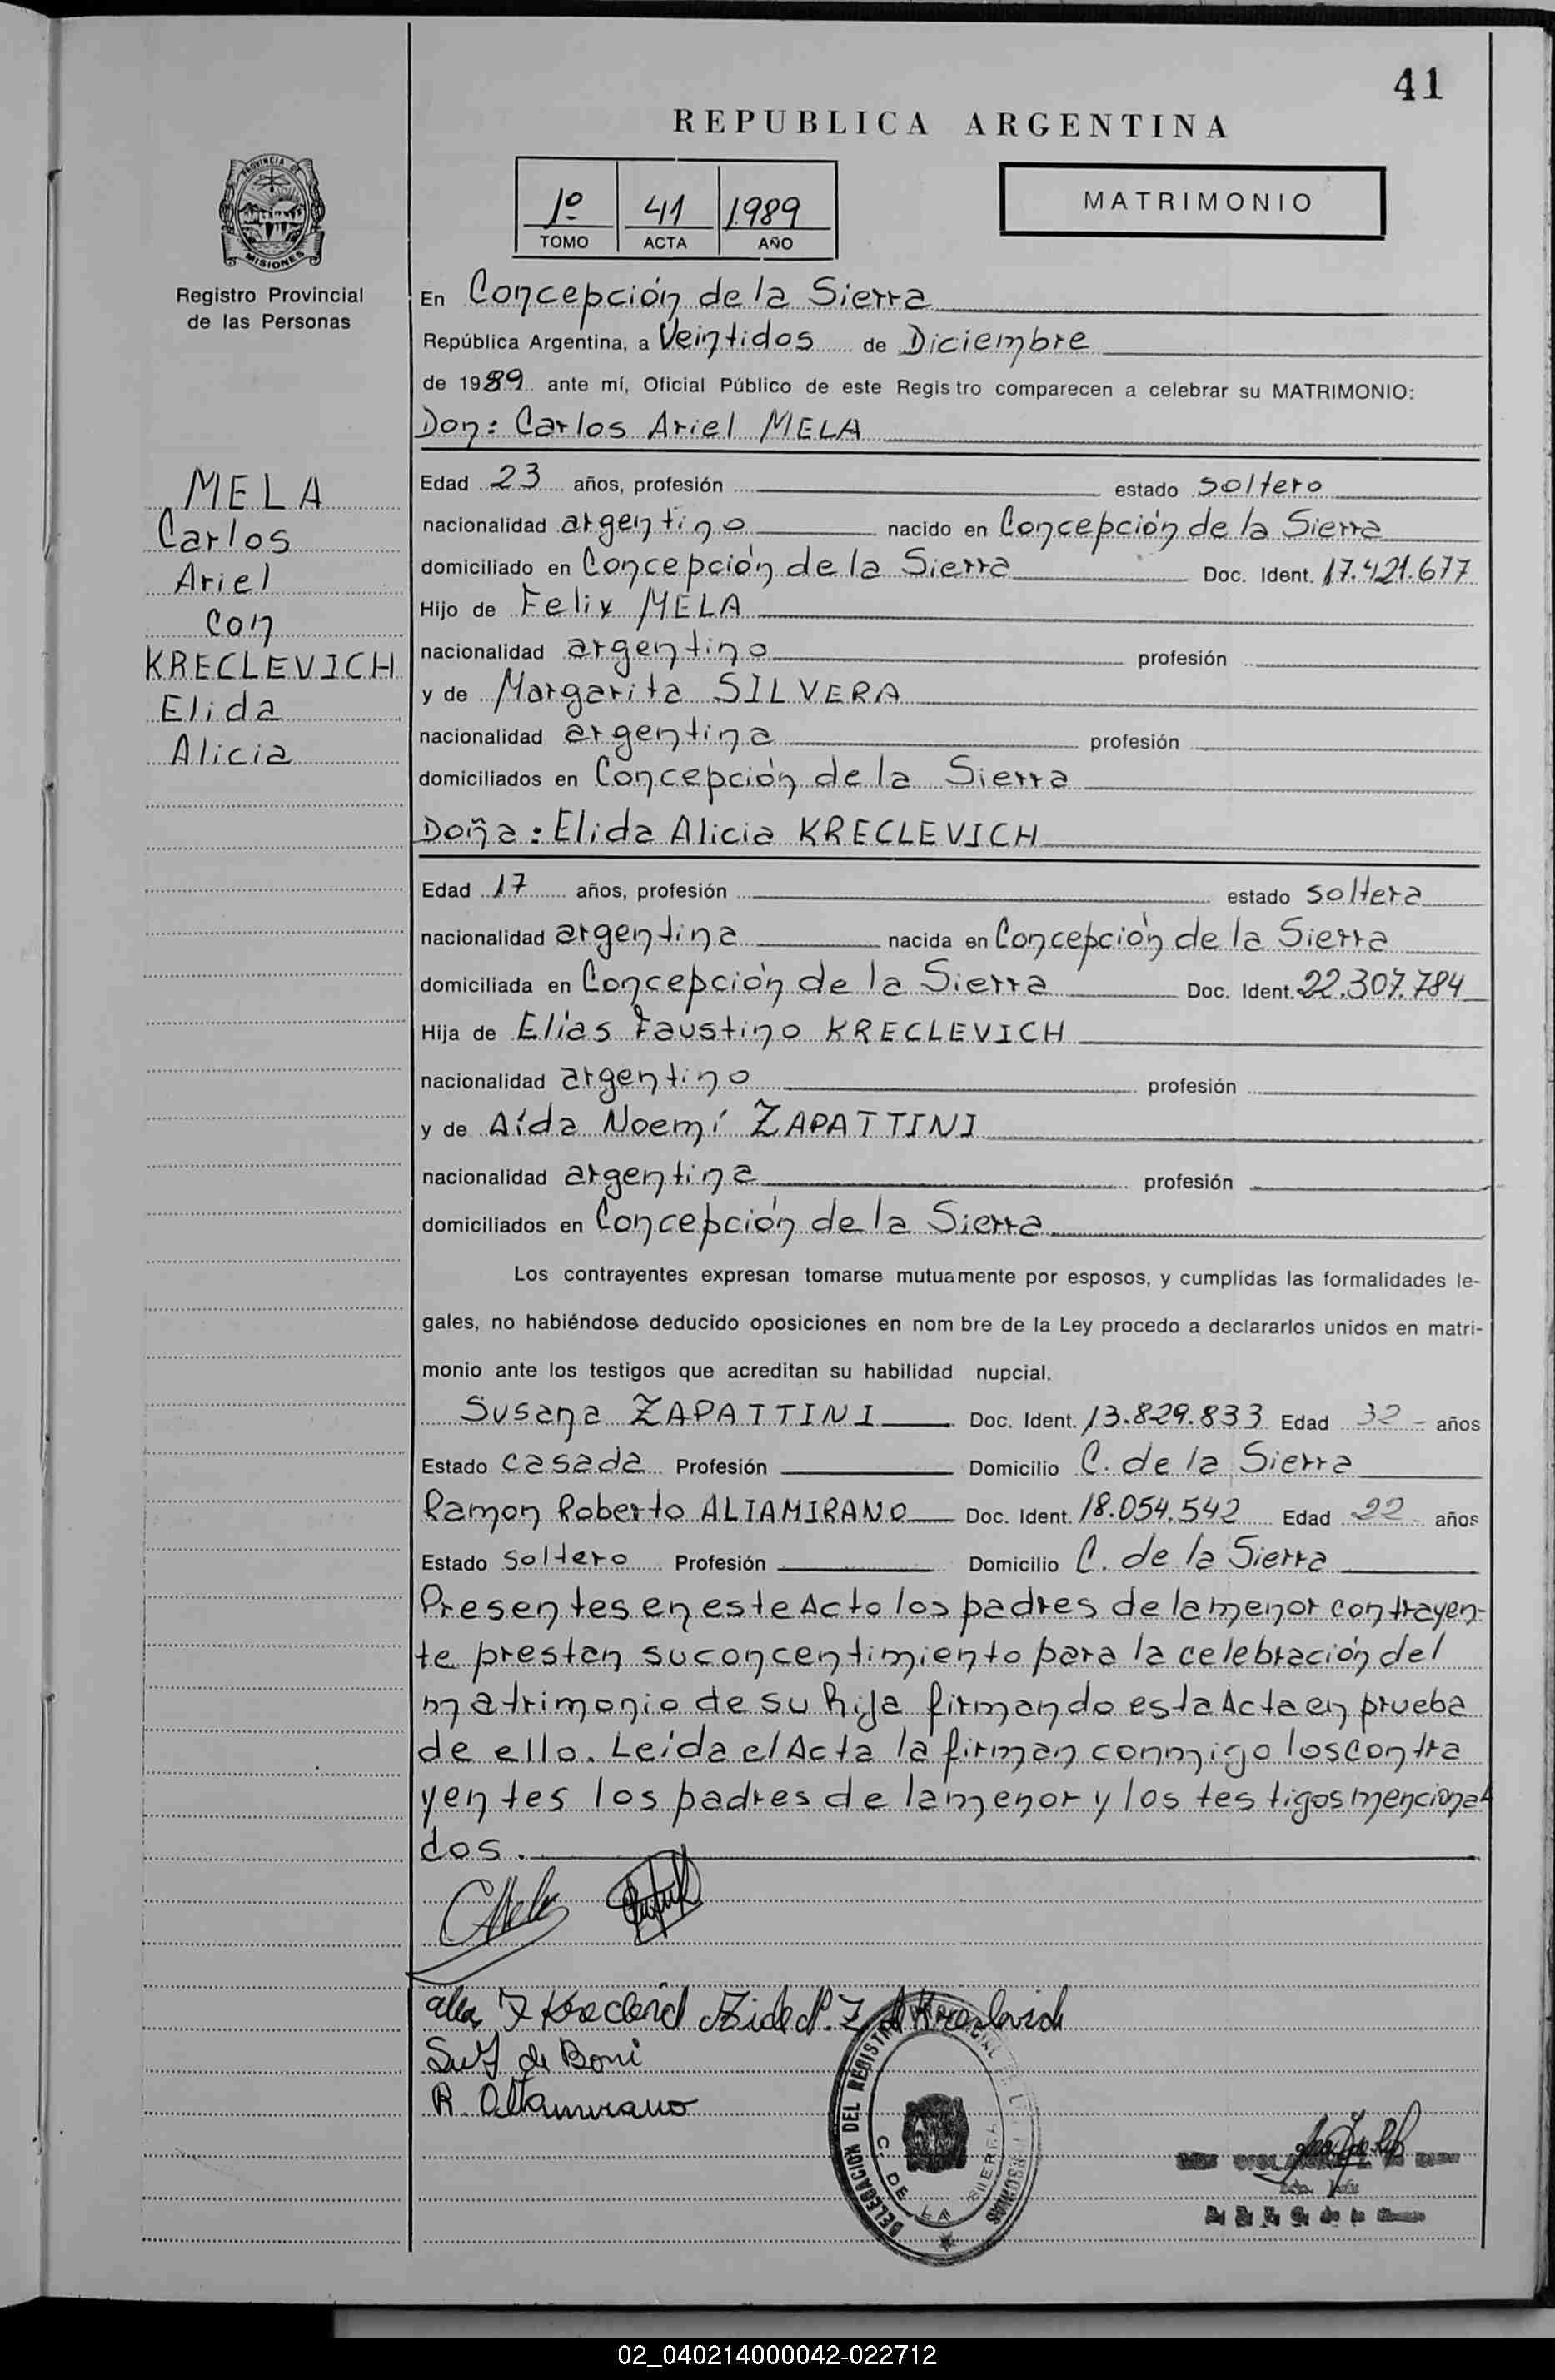 41
REPUBLICA ARGENTINA
PROVINCIA DE
MISIONES
Registro Provincial
de las Personas
1º 41 1989
TOMO ACTA AÑO
MATRIMONIO
En Concepción de la Sierra
República Argentina, a Veintidos de Diciembre
de 1989 ante mí, Oficial Público de este Registro comparecen a celebrar su MATRIMONIO:
Don: Carlos Ariel MELA
MELA
Carlos
Ariel
con
KRECLEVICH
Elida
Alicia
Edad 23 años, profesión estado soltero
nacionalidad argentino nacido en Concepción de la Sierra
domiciliado en Concepción de la Sierra Doc. Ident. 17.421.677
Hijo de Felix MELA
nacionalidad argentino profesión
y de Margarita SILVERA
nacionalidad argentina profesión
domiciliados en Concepción de la Sierra
Doña: Elida Alicia KRECLEVICH
Edad 17 años, profesión estado soltera
nacionalidad argentina nacida en Concepción de la Sierra
domiciliada en Concepción de la Sierra Doc. Ident. 22.307.784
Hija de Elías Faustino KRECLEVICH
nacionalidad argentino profesión
y de Aída Noemí ZAPATTINI
nacionalidad argentina profesión
domiciliados en Concepción de la Sierra
Los contrayentes expresan tomarse mutuamente por esposos, y cumplidas las formalidades le-
gales, no habiéndose deducido oposiciones en nom bre de la Ley procedo a declararlos unidos en matri-
monio ante los testigos que acreditan su habilidad nupcial.
Susana ZAPATTINI Doc. Ident. 13.829.833 Edad 32 - años
Estado casada Profesión Domicilio C. de la Sierra
Ramon Roberto ALTAMIRANO Doc. Ident. 18.054.542 Edad 22 años
Estado soltero Profesión Domicilio C. de la Sierra
Presentes en este Acto los padres de la menor contrayen-
te prestan su concentimiento para la celebración del
matrimonio de su hija firmando esta Acta en prueba
de ello. Leída el Acta la firman conmigo los contra
yentes los padres de la menor y los testigos menciona
dos.
CMela
Kreclevich
de Boni
R. Altamirano
DELEGACION DEL REGISTRO PROVINCIAL DE LAS PERSONAS
C. DE LA SIERRA
02_040214000042-022712